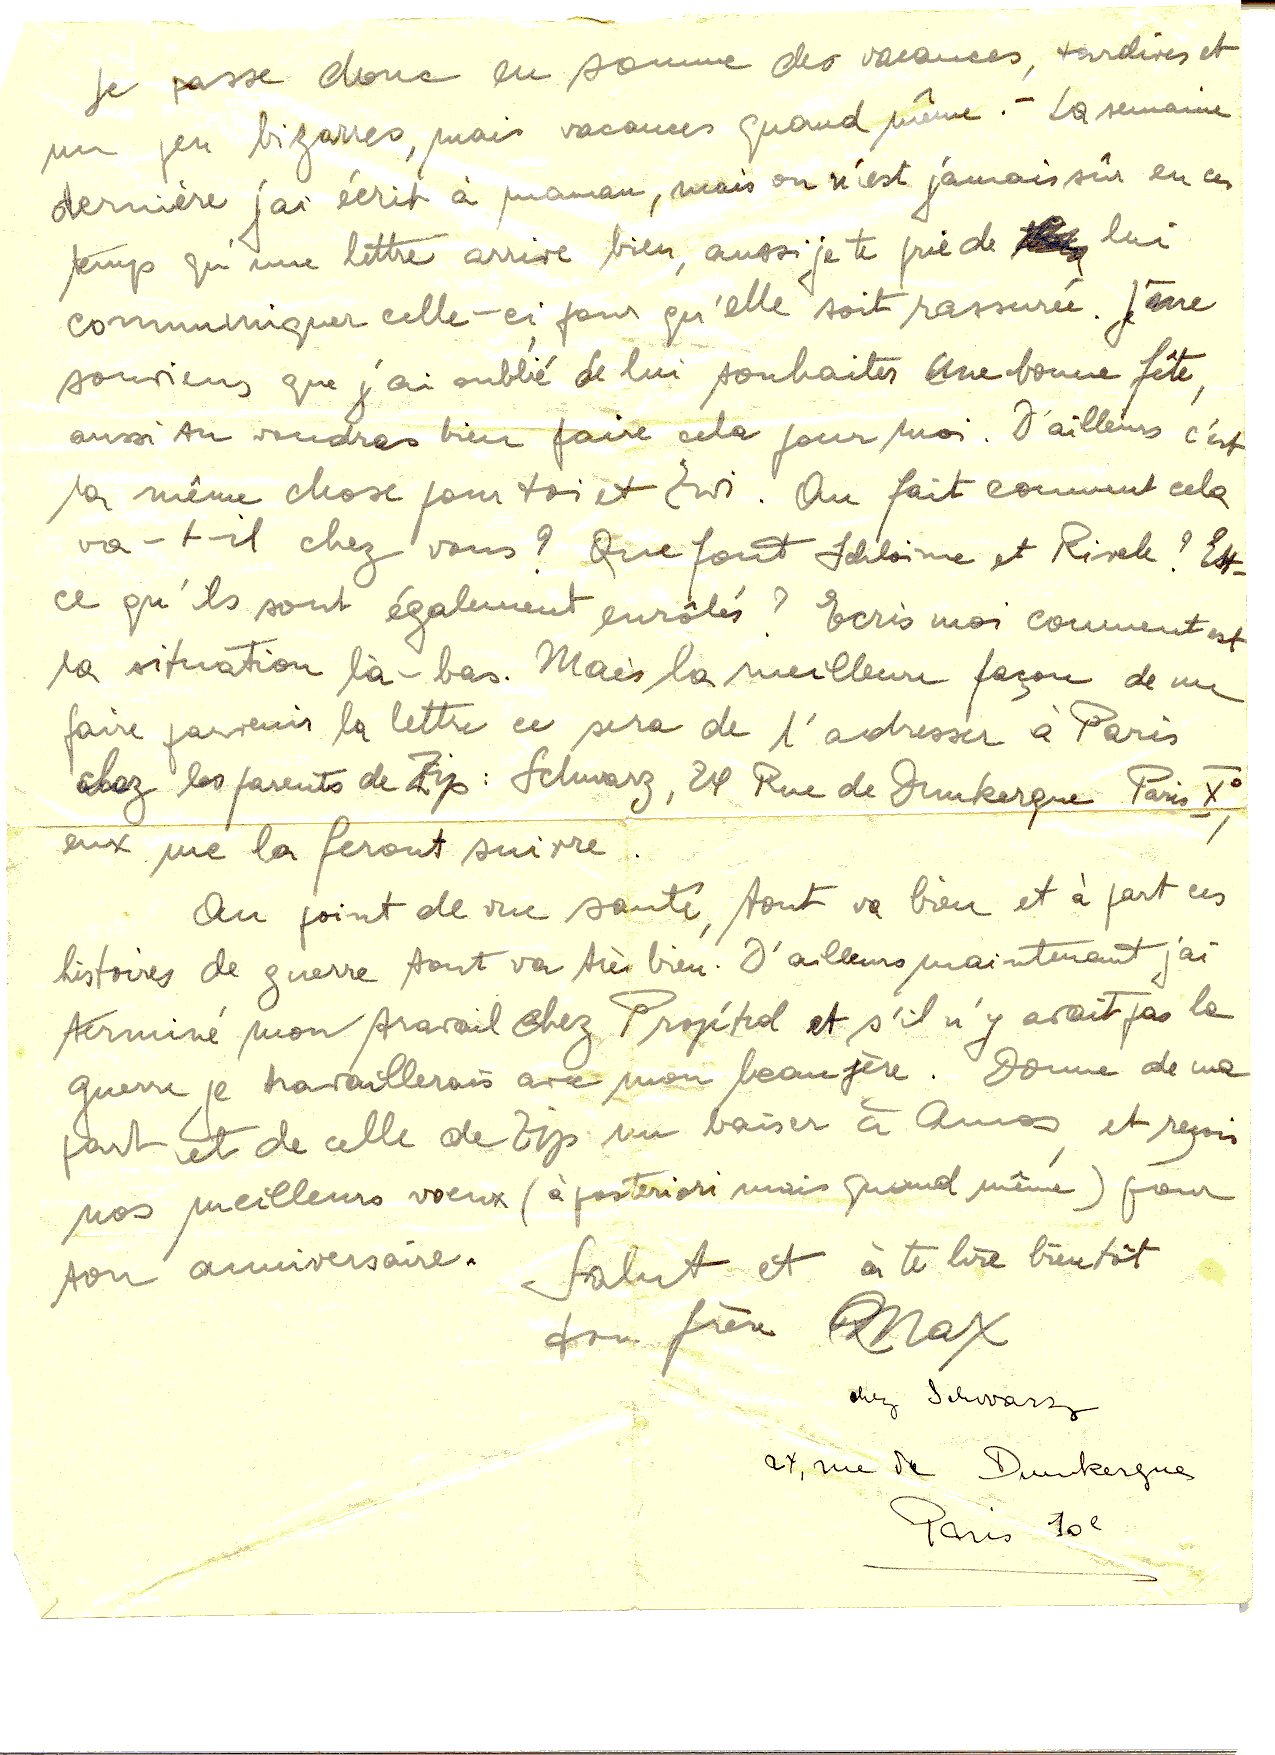 Je passe donc en somme des vacances, tardives et
un peu bizarres, mais vacances quand même. - La semaine
dernière j'ai écrit à maman, mais on n'est jamais sûr en ces
temps qu'une lettre arrive bien, aussi je te prie de lui
communiquer celle-ci pour qu'elle soit rassurée. Je me
souviens que j'ai oublié de lui souhaiter une bonne fête,
aussi tu voudras bien faire cela pour moi. D'ailleurs c'est
la même chose pour toi et Zwi. Au fait comment cela
va-t-il chez vous? Que font Schloime et Rivele? Est-
ce qu'ils sont également enrôlés? Ecris moi comment est
la situation là-bas. Mais la meilleure façon de me
faire parvenir la lettre ce sera de l'adresser à Paris
chez les parents de Zip: Schwarz, 24 Rue de Dunkerque Paris X°,
eux me la feront suivre.
Au point de vue santé, tout va bien et à part ces
histoires de guerre tout va très bien. D'ailleurs maintenant j'ai
terminé mon travail chez et s'il n'y avait pas la
guerre je travaillerais avec mon beau père. Donne de ma
part et de celle de Zip un baiser à Amos, et reçois
nos meilleurs voeux (à posteriori mais quand même) pour
ton anniversaire. Salut et à te lire bientôt
ton frère Max
chez Schwarz
24, rue de Dunkerque
Paris 10e